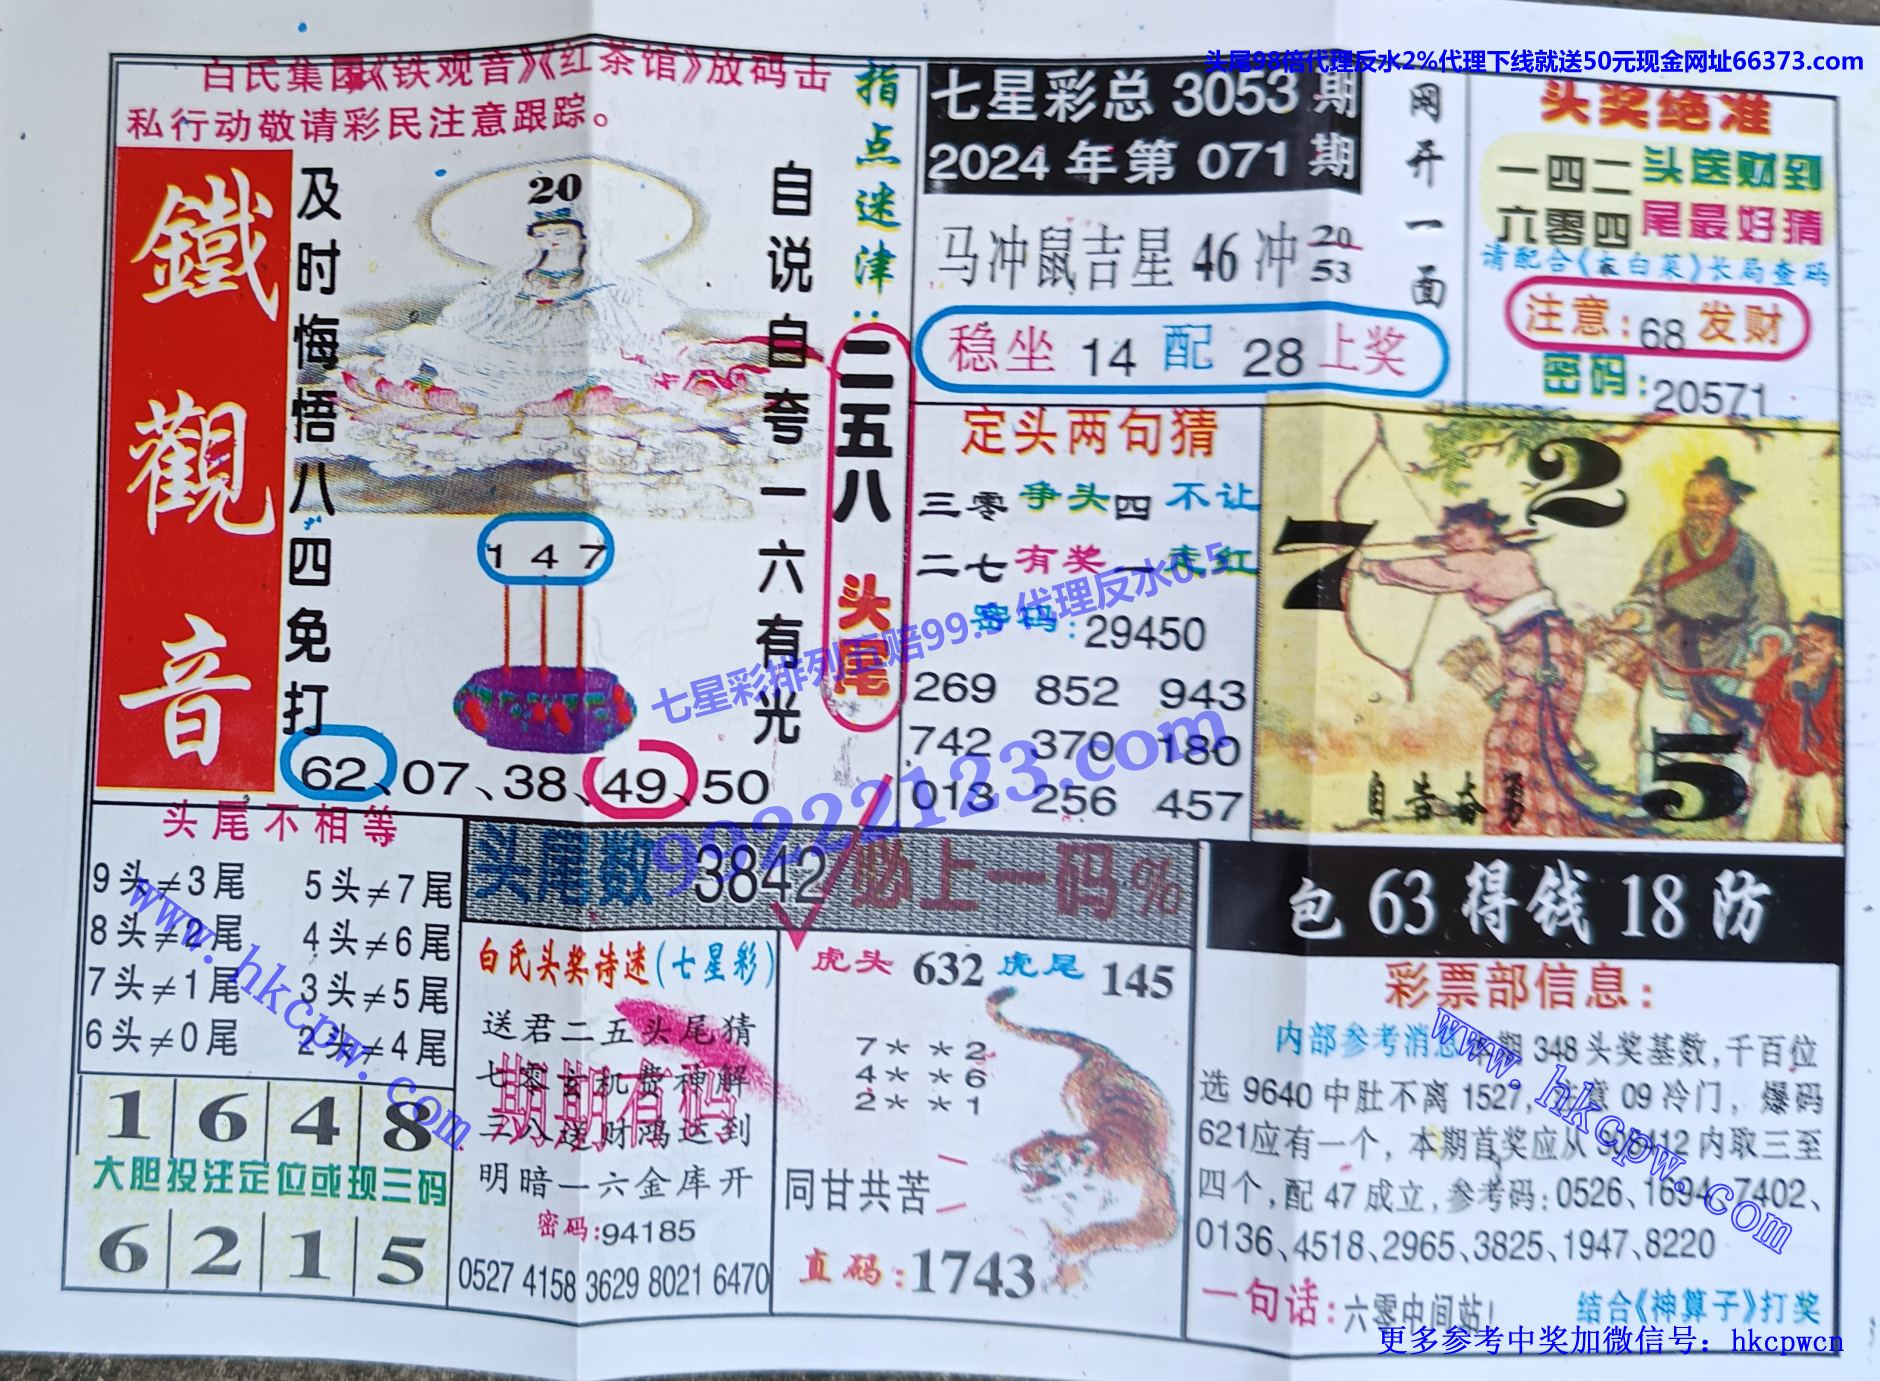 头尾98倍代理反水2%代理下线就送50元现金网址66373.com
白氏集团《铁观音》《红茶馆》放码击
私行动敬请彩民注意跟踪。
鐵觀音
及时悔悟八四免打
20
自说自夸一六有光
1 4 7
62、07、38、49、50
指点迷津：
二五八 头尾
七星彩总 3053 期
2024 年第 071 期
马冲鼠吉星 46 冲 20 53
稳坐 14 配 28 上奖
网开一面
头奖绝准
一四二头送财到
六零四尾最好猜
请配合《大白菜》长局查码
注意：68 发财
密码：20571
定头两句猜
三零争头四不让
二七有奖一走红
密码：29450
269 852 943
742 370 180
013 256 457
7 2 5
自告奋勇
七星彩排列五赔99.5 代理反水0.5
99222123.com
头尾不相等
9头≠3尾 5头≠7尾
8头≠2尾 4头≠6尾
7头≠1尾 3头≠5尾
6头≠0尾 2头≠4尾
1 6 4 8
大胆投注定位或现三码
6 2 1 5
头尾数 3842 必上一码%
白氏头奖诗迷(七星彩)
送君二五头尾猜
七零玄机费神解
三八送财鸿运到
明暗一六金库开
期期有码
密码:94185
0527 4158 3629 8021 6470
虎头 632 虎尾 145
7＊ ＊2
4＊ ＊6
2＊ ＊1
同甘共苦
直码：1743
包 63 得钱 18 防
彩票部信息：
内部参考消息本期 348 头奖基数,千百位
选 9640 中肚不离 1527, 注意 09 冷门，爆码
621应有一个，本期首奖应从 908412 内取三至
四个,配 47 成立,参考码:0526、1694、7402、
0136、4518、2965、3825、1947、8220
一句话：六零中间站!
结合《神算子》打奖
www.hkcpw.com
www.hkcpw.com
更多参考中奖加微信号：hkcpwcn